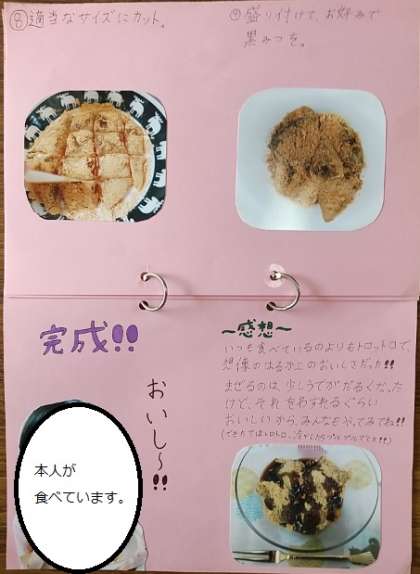 ⑧適当なサイズにカット。
⑨盛り付けて、お好みで
黒みつを。
完成!!
おいし〜!!
本人が
食べています。
〜感想〜
いつも食べているのよりもトロットロで、
想像のはるか上のおいしさだった!!
まぜるのは少しうでがだるくなった
けど、それをわすれるぐらい
おいしいから、みんなもやってみてね!!
(できたてはトロトロ、冷やしたらプルプルでした!!)